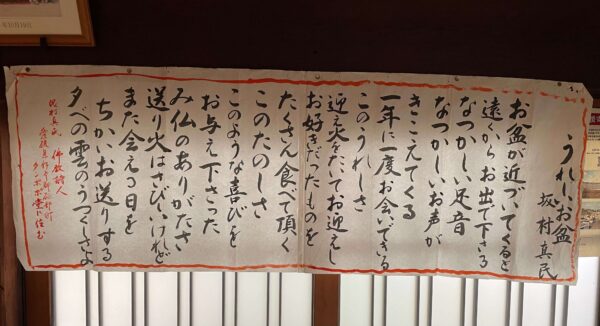 うれしいお盆
坂村真民
お盆が近づいてくると
遠くからお出で下さる
なつかしい足音
なつかしいお声が
きこえてくる
一年に一度お会いできる
このうれしさ
迎え火をたいてお迎えし
お好きだったものを
たくさん食べて頂く
このたのしさ
このような喜びを
お与え下さった
み仏のありがたさ
送り火はさびしいけれど
また会える日を
ちかいお送りする
夕べの雲のうつくしさよ
坂村真民 仏教詩人
愛媛県伊予郡砥部町
タンポポ堂に住む
年10月19日